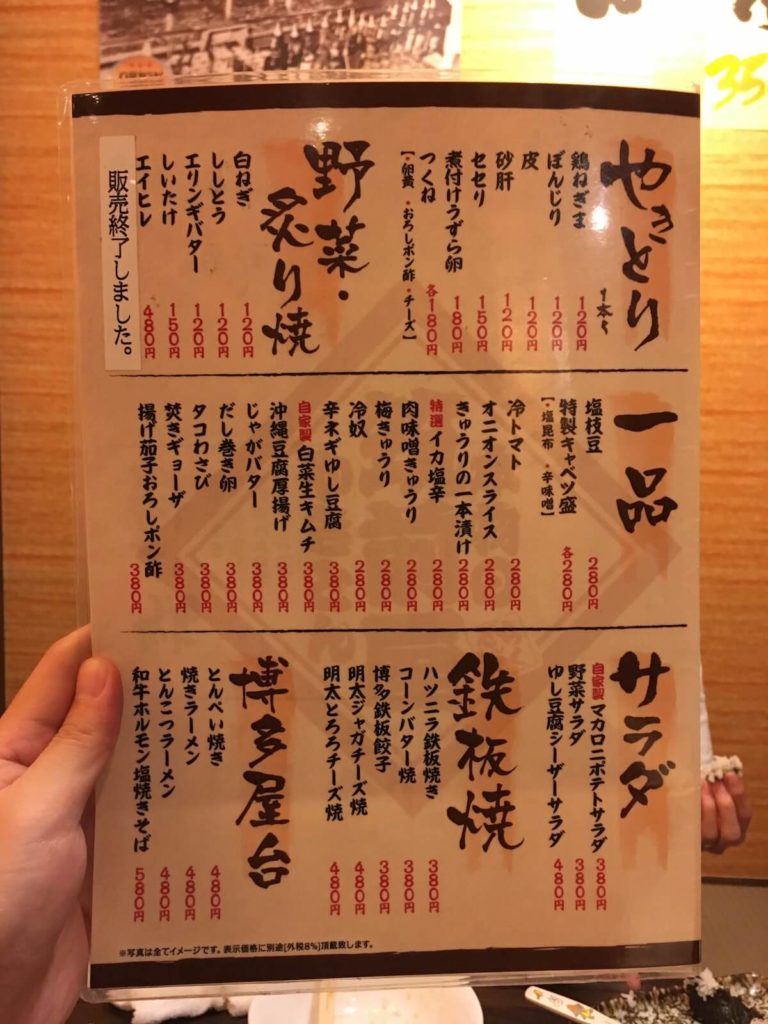 やきとり
1本〜
鶏ねぎま 120円
ぼんじり 120円
皮 120円
砂肝 120円
セセリ 150円
煮付けうずら卵 180円
つくね 各180円
【・卵黄 ・おろしポン酢 ・チーズ】
野菜・炙り焼
白ねぎ 120円
ししとう 120円
エリンギバター 120円
しいたけ 150円
エイヒレ 480円
販売終了しました。
一品
塩枝豆 280円
特製キャベツ盛 各280円
【・塩昆布 ・辛味噌】
冷トマト 280円
オニオンスライス 280円
きゅうりの一本漬け 280円
特選 イカ塩辛 280円
肉味噌きゅうり 280円
梅きゅうり 280円
冷奴 280円
辛ネギゆし豆腐 380円
自家製 白菜生キムチ 380円
沖縄豆腐厚揚げ 380円
じゃがバター 380円
だし巻き卵 380円
タコわさび 380円
焚きギョーザ 380円
揚げ茄子おろしポン酢 380円
サラダ
自家製 マカロニポテトサラダ 380円
野菜サラダ 380円
ゆし豆腐シーザーサラダ 480円
鉄板焼
ハツニラ鉄板焼き 380円
コーンバター焼 380円
博多鉄板餃子 380円
明太ジャガチーズ焼 480円
明太とろろチーズ焼 480円
博多屋台
とんぺい焼き 480円
焼きラーメン 480円
とんこつラーメン 480円
和牛ホルモン塩焼きそば 580円
※写真は全てイメージです。表示価格に別途[外税8%]頂戴致します。
35